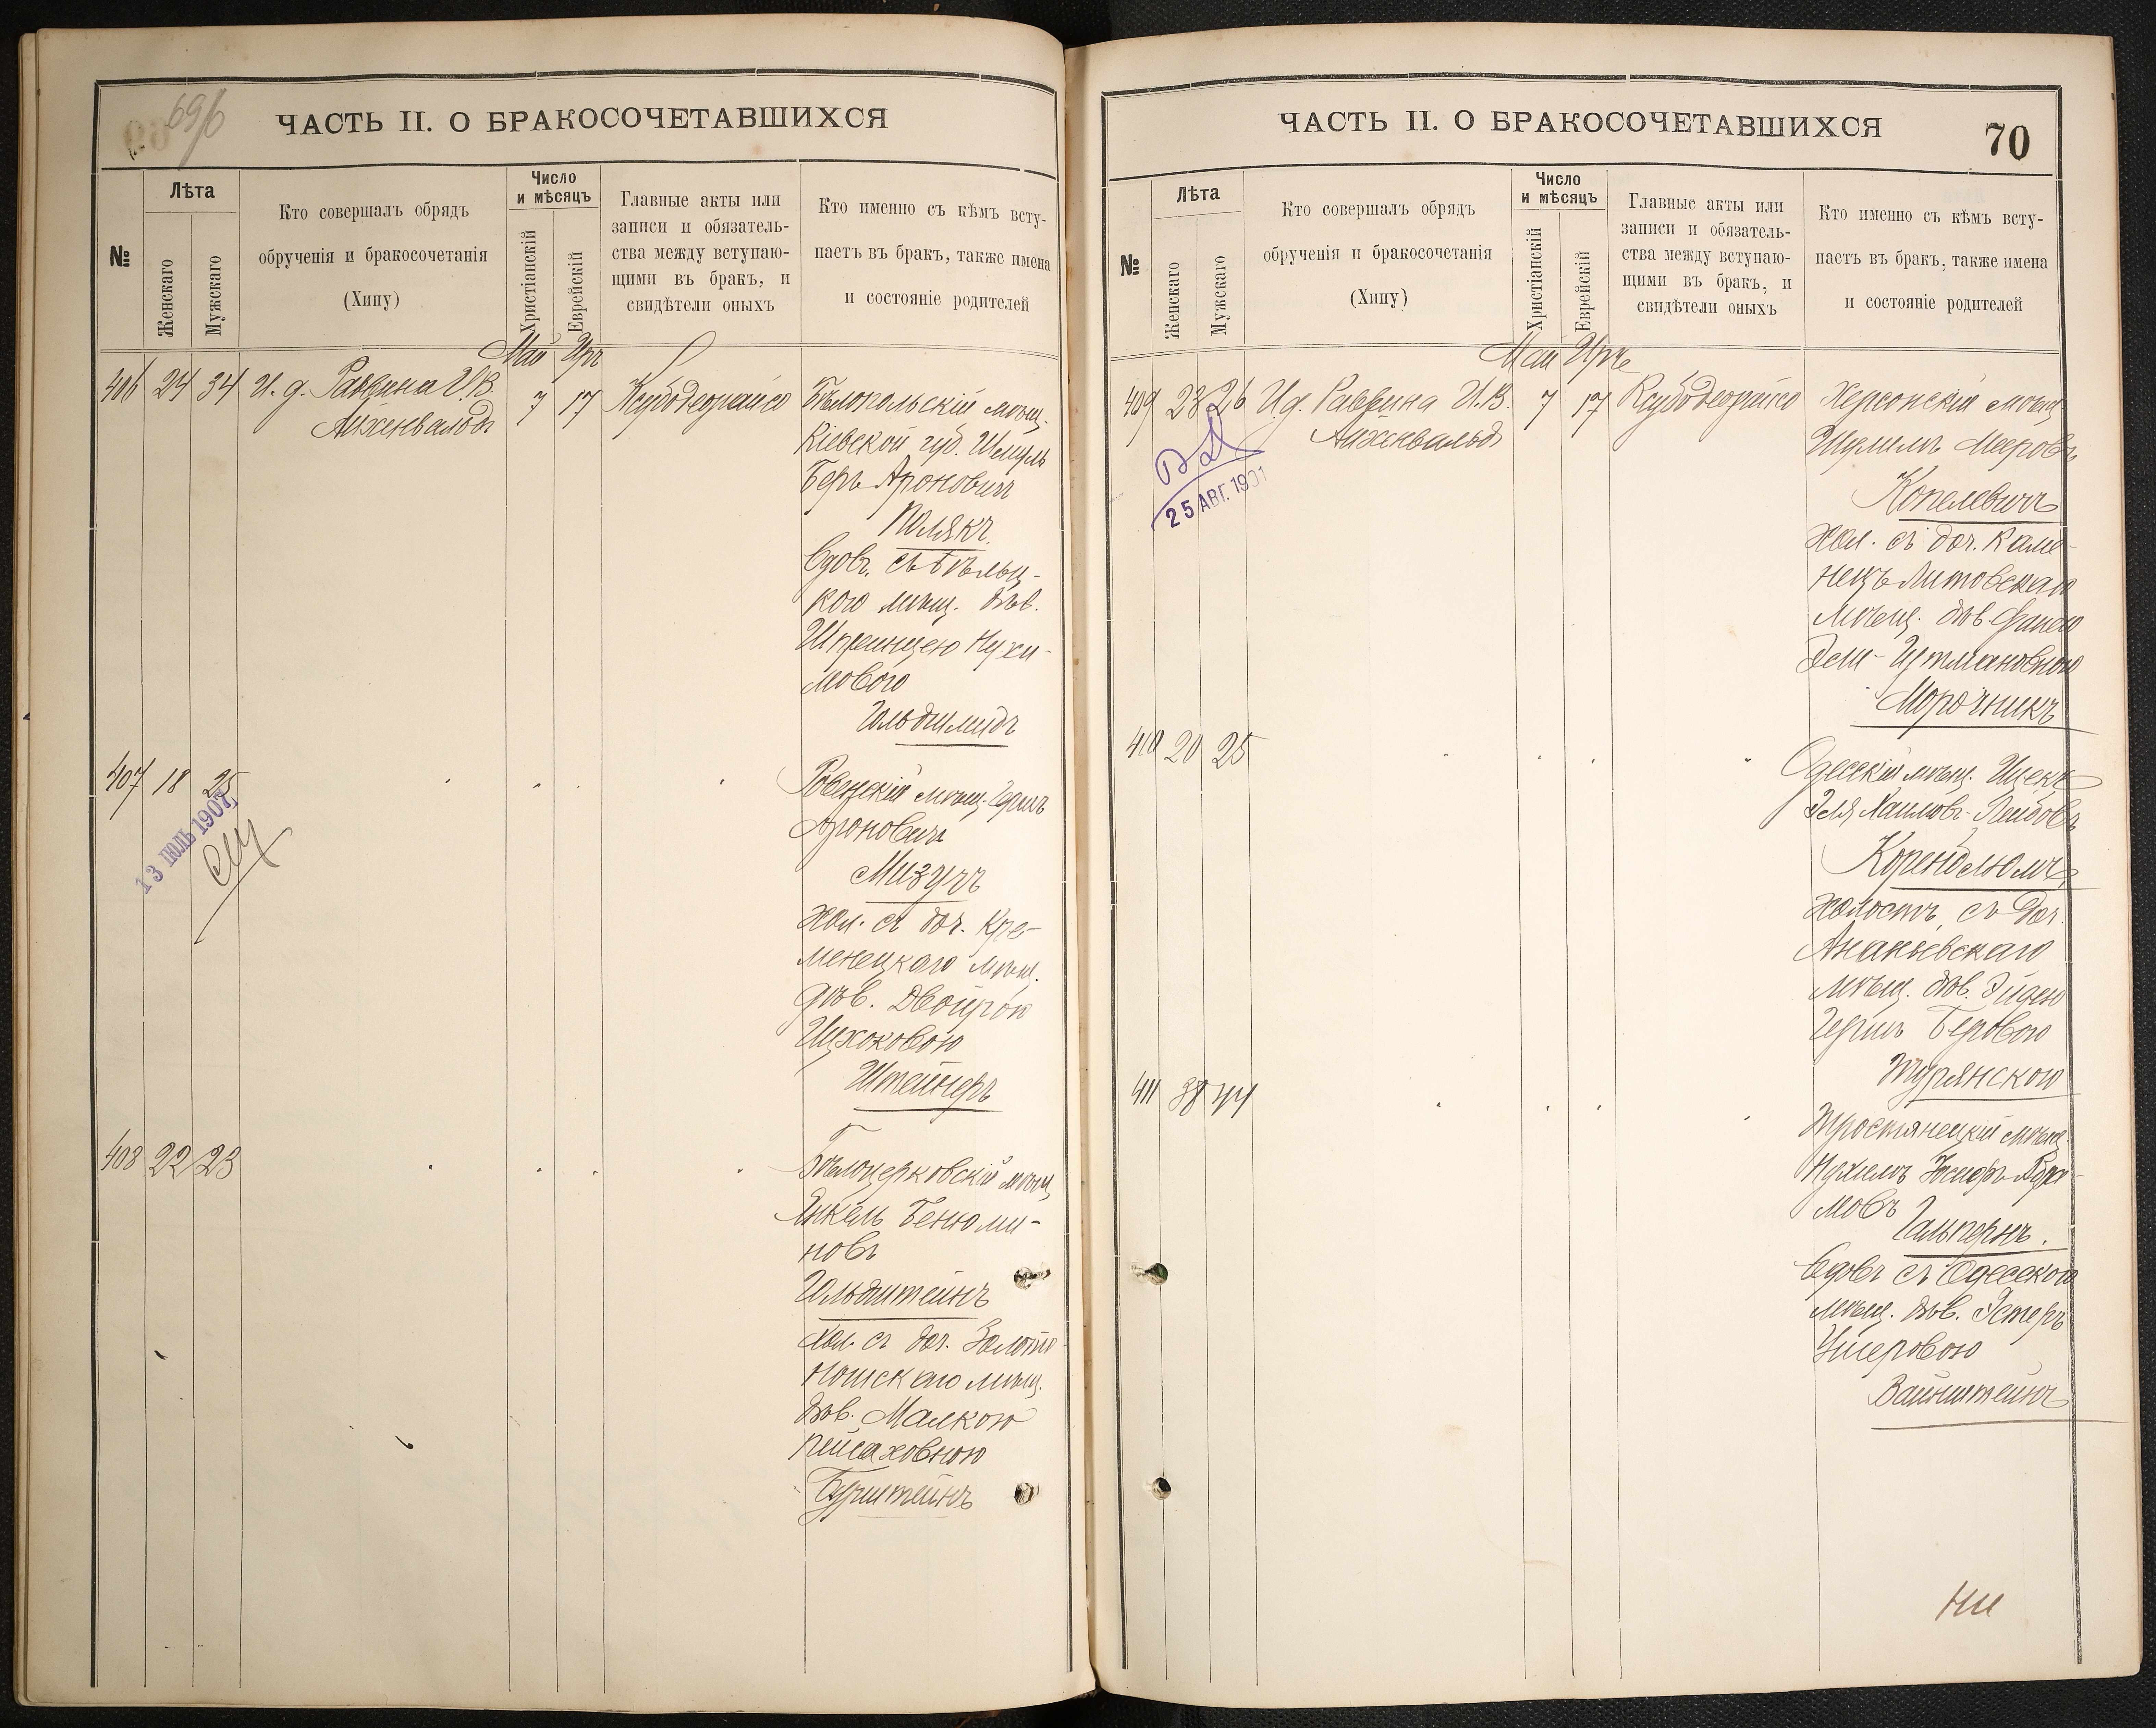 69/б
ЧАСТЬ II. О БРАКОСОЧЕТАВШИХСЯ
№
Лѣта
Женскаго
Мужскаго
Кто совершалъ обрядъ
обрученія и бракосочетанія
(Хипу)
Число
и мѣсяцъ
Христіанскій
Еврейскій
Главные акты или
записи и обязатель-
ства между вступаю-
щими въ бракъ, и
свидѣтели оныхъ
Кто именно съ кѣмъ всту-
паетъ въ бракъ, также имена
и состояніе родителей
Май
406 24 34 И. д. Раввина И.В.
Айхенвальдъ
7 17
Бѣлопольскій мѣщ.
Кіевской губ. Шмуль
Беръ Ароновичъ
Полякъ.
Вдов. съ Бѣльц-
кою мѣщ. дѣв.
Шпринцею Нухи-
мовою
Гольдшмидъ
407 18 25
13 ІЮЛЬ 1907
Ровенскій мѣщ. Гершъ
Ароновичъ
Мизучъ
хол. съ доч. Кре-
менецкаго мѣщ.
дѣв. Двойрою
Ицхоковою
Штейнеръ
408 22 23
Бѣлоцерковскій мѣщ.
Янкель Бенюми-
новъ
Гольдштейнъ
хол. съ доч. Золото
ношскаго мѣщ.
дѣв. Малкою
Пейсаховною
Бурштейнъ
ЧАСТЬ II. О БРАКОСОЧЕТАВШИХСЯ
70
№
Лѣта
Женскаго
Мужскаго
Кто совершалъ обрядъ
обрученія и бракосочетанія
(Хипу)
Число
и мѣсяцъ
Христіанскій
Еврейскій
Главные акты или
записи и обязатель-
ства между вступаю-
щими въ бракъ, и
свидѣтели оныхъ
Кто именно съ кѣмъ всту-
паетъ въ бракъ, также имена
и состояніе родителей
Май
409 23 26 И.д. Раввина И.В.
Айхенвальдъ
7 17
25 АВГ. 1901
Херсонскій мѣщ.
Шулимъ Мееровъ
Копелевичъ
Хол. съ доч. Каме-
нецъ Литовскаго
мѣщ. дѣв. Фанею
Морочникъ
410 20 25
Одесскій мѣщ. Ицекъ
Хаимовъ-Лейбовъ
Коренблюмъ
холостъ, съ доч.
Ананьевскаго
мѣщ. дѣв. Эйдею
Гершъ Беровою
Турянскою
411 38 44
Тростянецкій мѣщ.
мовъ
Гальпернъ.
Вдовъ съ Одесскою
мѣщ. дѣв. Эстеръ
Ушеровою
Вайнштейнъ